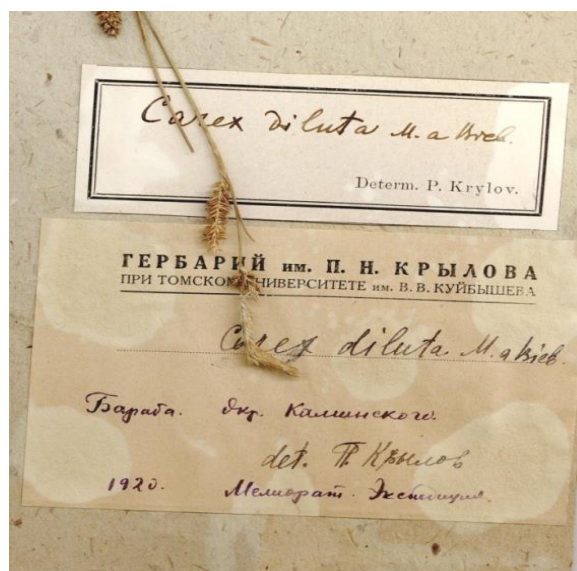 Carex diluta M. a Bieb.
Determ. P. Krylov.
ГЕРБАРИЙ им. П. Н. КРЫЛОВА
ПРИ ТОМСКОМ УНИВЕРСИТЕТЕ им. В. В. КУЙБЫШЕВА
Carex diluta M. a Bieb.
Бараба. Окр. Каинского.
det. П. Крылов
1920. Мелиорат. Экспедиция.